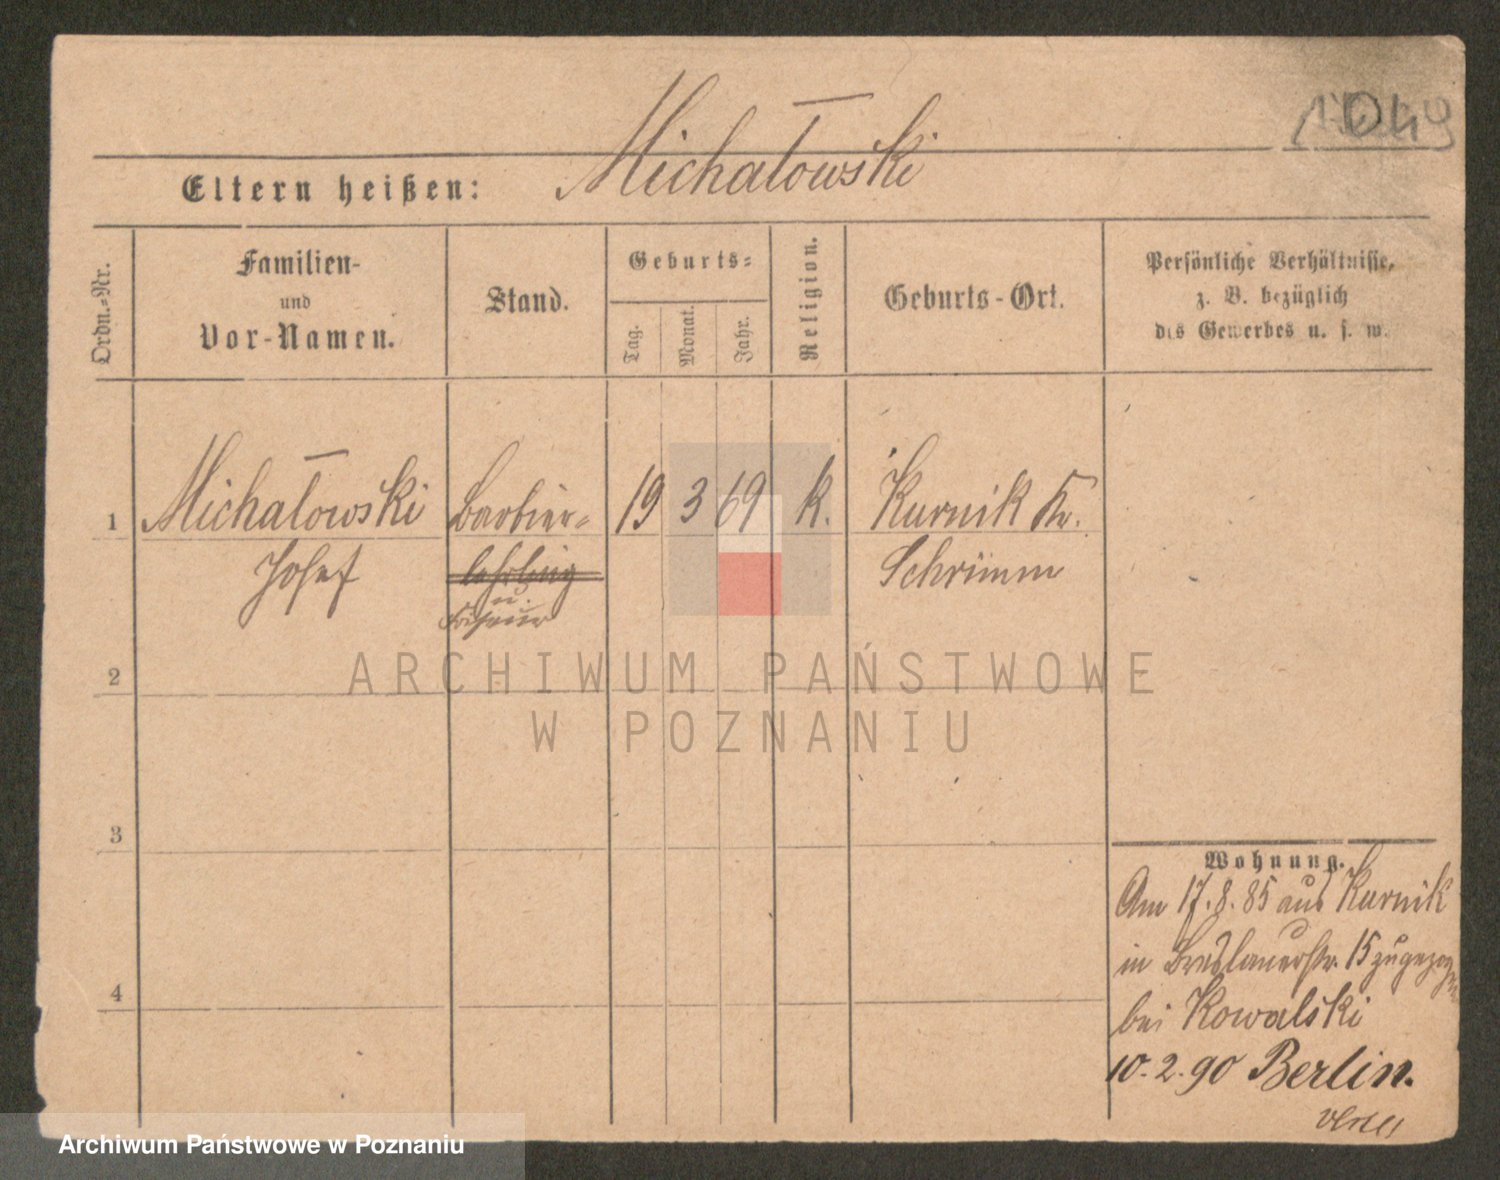 Michałowski
Eltern heißen:
Ordn.-Nr.
Familien-
und
Vor-Namen.
Stand.
Geburts-
Tag.
Monat.
Jahr.
Religion.
Geburts-Ort.
Persönliche Verhältnisse,
z. B. bezüglich
des Gewerbes u. s. w.
1 Michałowski Barbier- 19 3 69 k. Kurnik Kr.
Josef lehrling Schrimm
u.
Friseur
2
3
4
Wohnung.
Am 17.8.85 aus Kurnik
in Breslauerstr. 15 zugezogen
bei Kowalski
10.2.90 Berlin.
ARCHIWUM PAŃSTWOWE
W POZNANIU
Archiwum Państwowe w Poznaniu